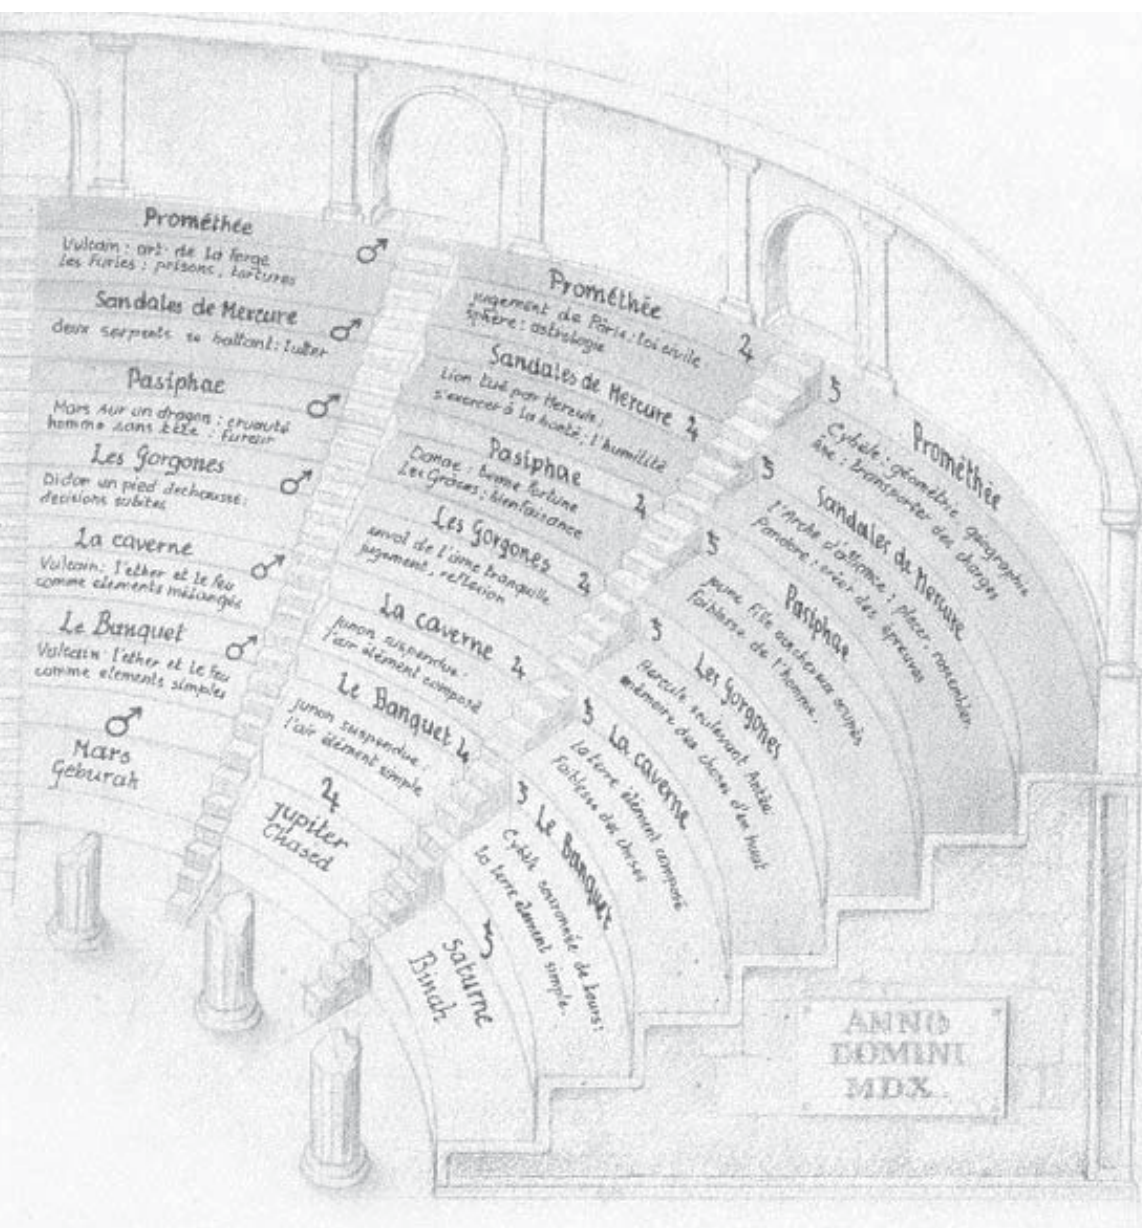 Prométhée
Vulcain : art de la forge
Les Furies : prisons, tortures
♂
Sandales de Mercure
deux serpents se battant : lutter
♂
Pasiphae
Mars sur un dragon : cruauté
homme sans tête : fureur
♂
Les Gorgones
Didon un pied dechaussé :
decisions subites
♂
La caverne
Vulcain : l'ether et le feu
comme elements mélangés
♂
Le Banquet
Vulcain : l'ether et le feu
comme elements simples
♂
♂
Mars
Geburah
Prométhée
jugement de Pâris : loi civile
sphère : astrologie
♃
Sandales de Mercure
Lion tué par Hercule :
s'exercer à la bonté, l'humilité
♃
Pasiphae
Danae : bonne fortune
Les Grâces : bienfaisance
♃
Les Gorgones
envol de l'âme tranquille
jugement, reflexion
♃
La caverne
junon suspendue :
l'air élément composé
♃
Le Banquet
junon suspendue :
l'air élément simple
♃
♃
Jupiter
Chased
♄
Prométhée
Cybèle : géométrie géographie
âne : transporter des charges
♄
Sandales de Mercure
l'Arche d'alliance : placer, rassembler
Pandore : créer des épreuves
♄
Pasiphae
jeune fille aux cheveux
faiblesse de l'homme.
♄
Les Gorgones
Hercule soulevant Antée :
mémoire des choses d'en haut
♄
La caverne
la terre élément composé
Faiblesse des choses
♄
Le Banquet
Cybèle couronnée de tours :
la terre élément simple.
♄
Saturne
Binah
ANNO
DOMINI
MDX.